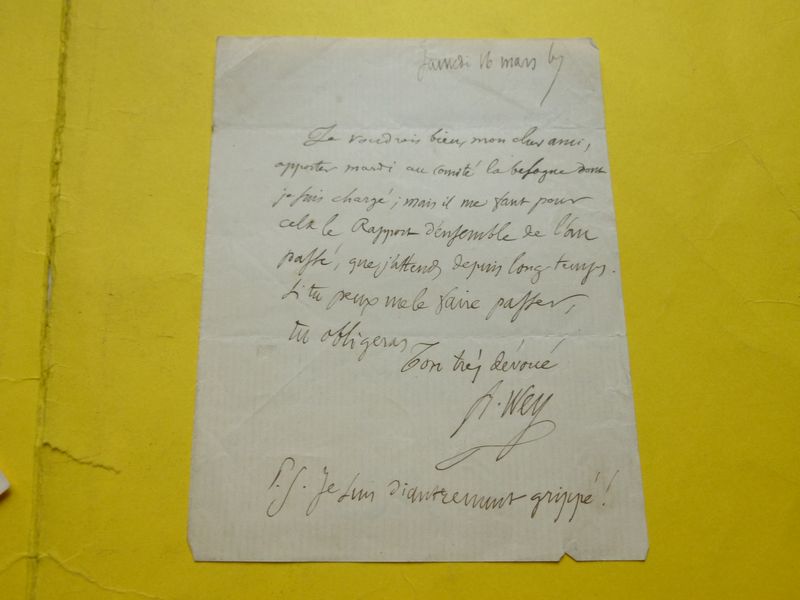 Samedi 16 mars 67
Je voudrais bien, mon cher ami,
apporter mardi au comité la besogne dont
je suis chargé ; mais il me faut pour
cela le Rapport d'ensemble de l'an
passé, que j'attends depuis long-temps.
Si tu peux me le faire passer,
tu obligeras
Ton très dévoué
F. Wey
P.S. Je suis diantrement grippé !